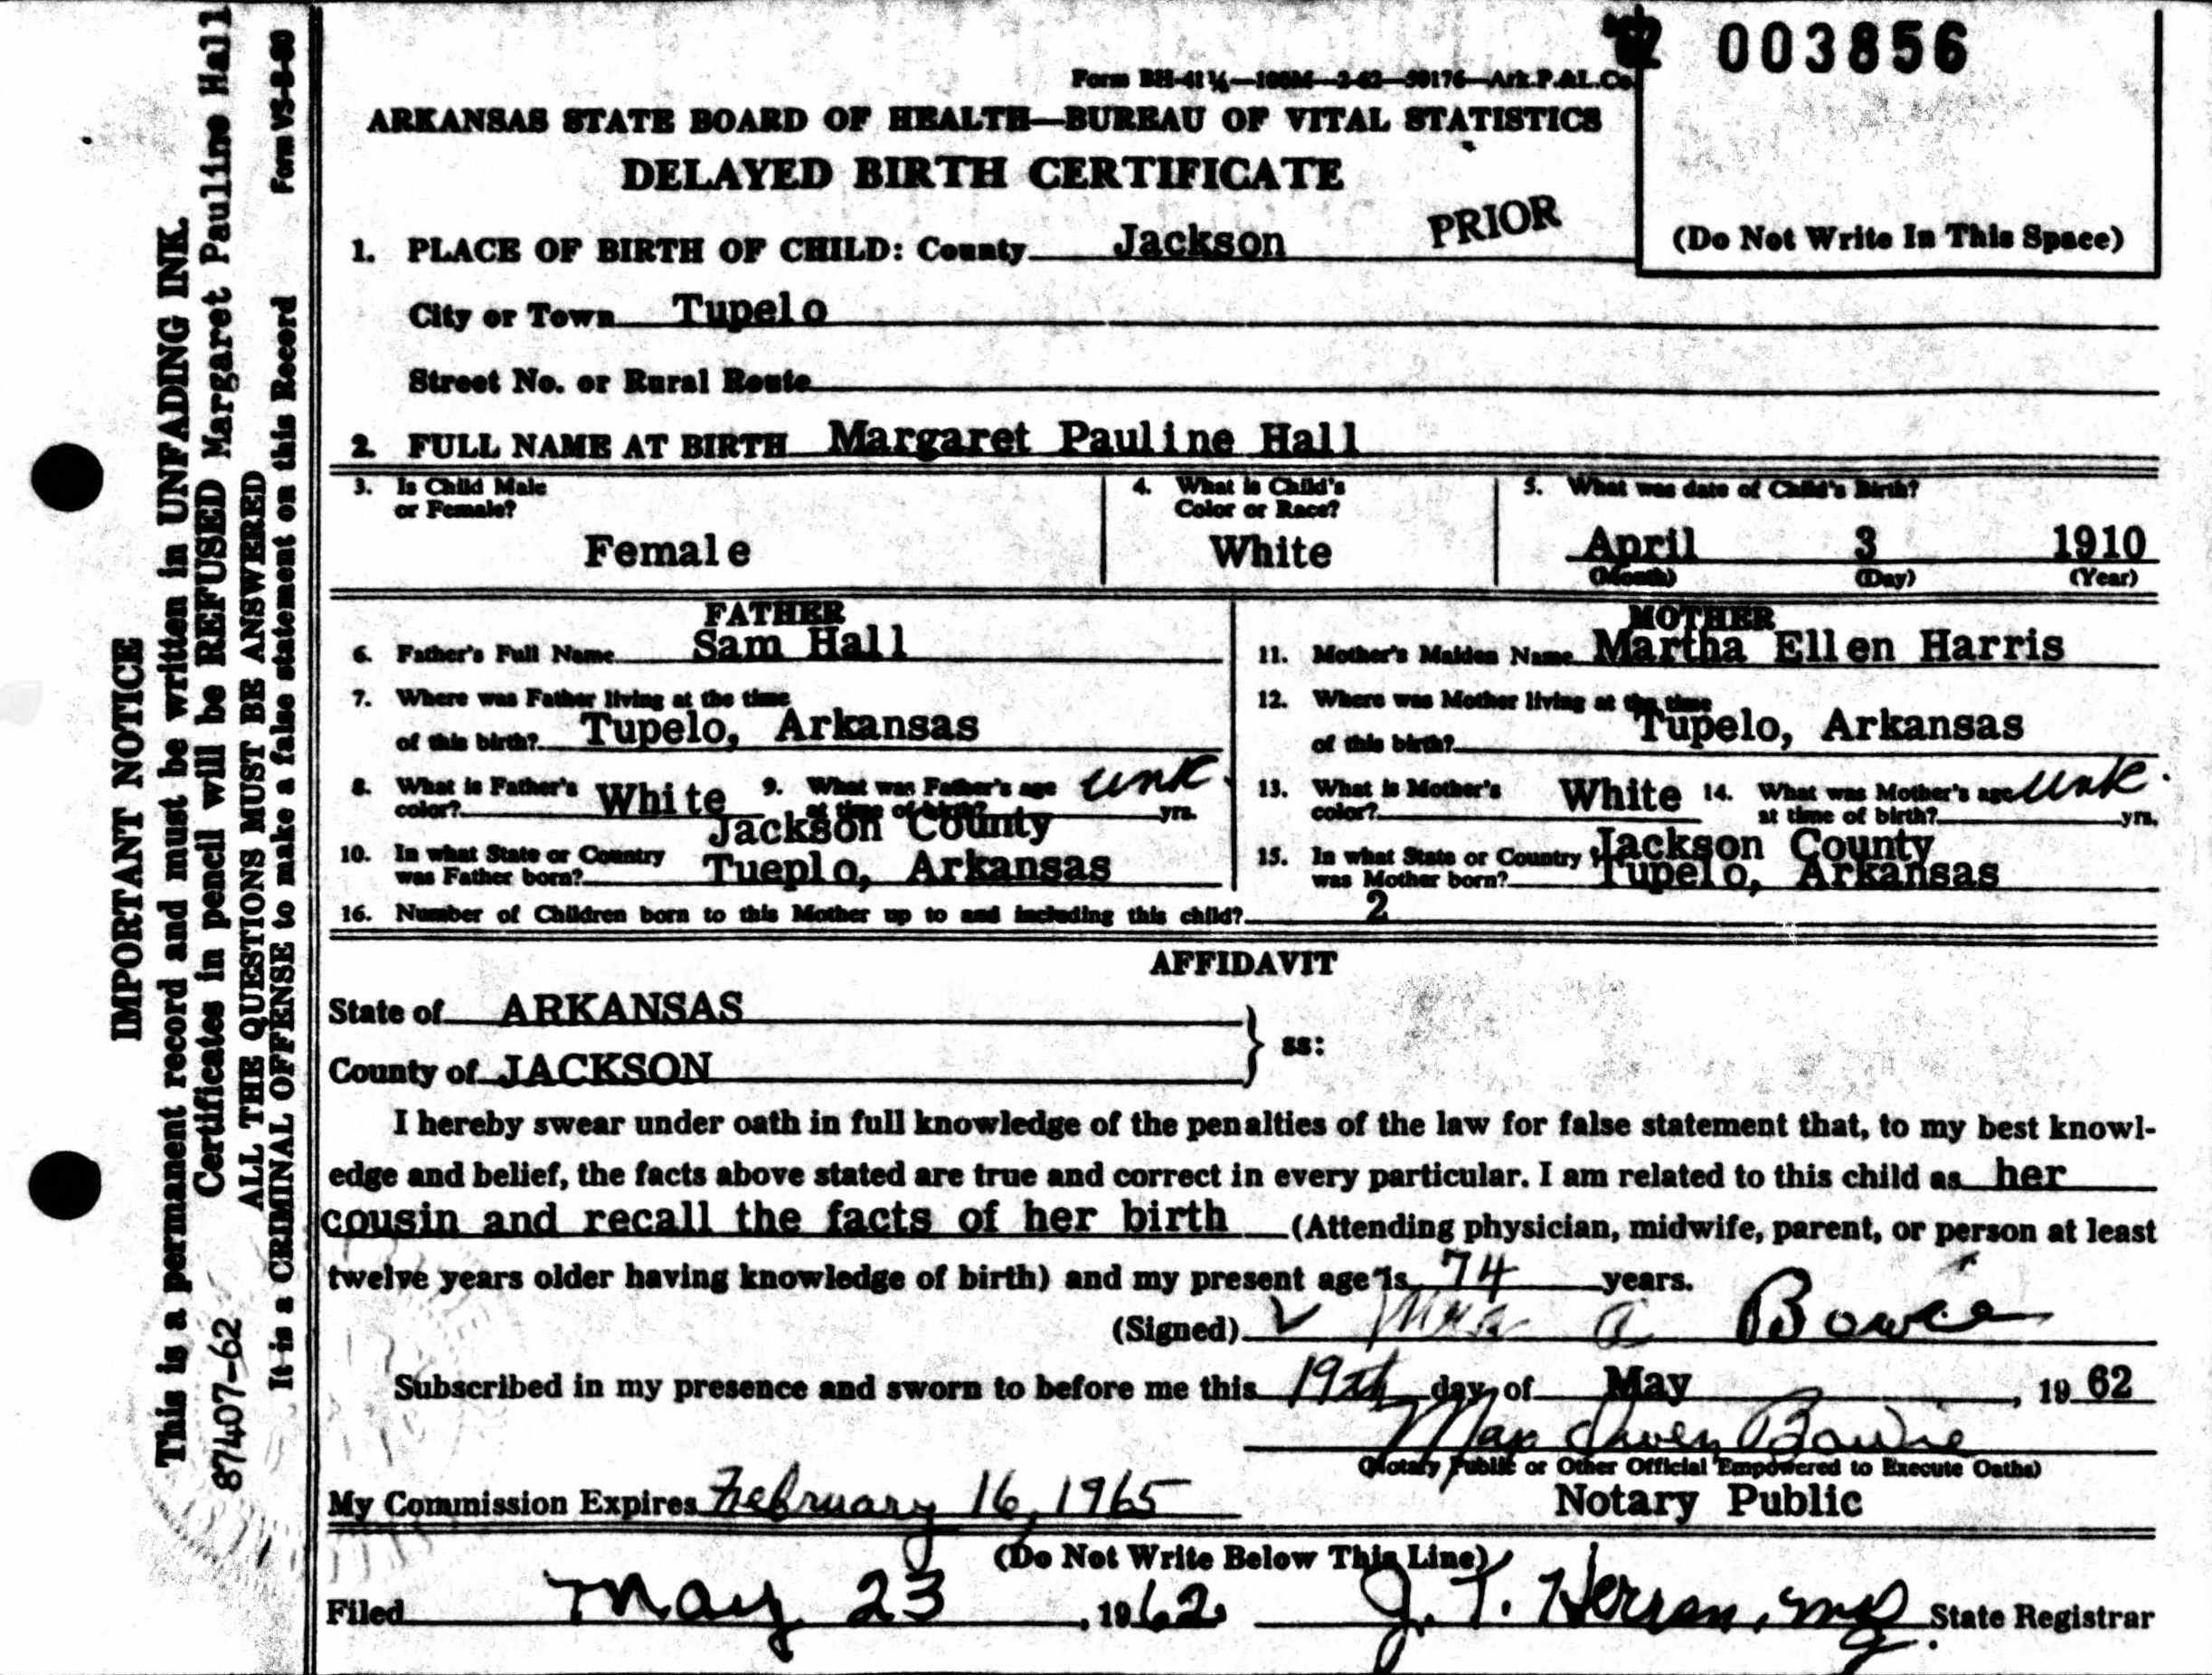 003856
Form BH-41½—100M—2-62—50176—Ark.P.&L.Co.
ARKANSAS STATE BOARD OF HEALTH—BUREAU OF VITAL STATISTICS
DELAYED BIRTH CERTIFICATE
PRIOR
(Do Not Write In This Space)
1. PLACE OF BIRTH OF CHILD: County Jackson
City or Town Tupelo
Street No. or Rural Route
2. FULL NAME AT BIRTH Margaret Pauline Hall
3. Is Child Male
or Female?
Female
4. What is Child's
Color or Race?
White
5. What was date of Child's Birth?
April 3 1910
(Month) (Day) (Year)
FATHER
6. Father's Full Name Sam Hall
7. Where was Father living at the time
of this birth? Tupelo, Arkansas
8. What is Father's
color? White
9. What was Father's age
at time of birth? unk yrs.
Jackson County
10. In what State or Country
was Father born? Tueplo, Arkansas
MOTHER
11. Mother's Maiden Name Martha Ellen Harris
12. Where was Mother living at the time
of this birth? Tupelo, Arkansas
13. What is Mother's
color? White
14. What was Mother's age
at time of birth? unk yrs.
15. In what State or Country Jackson County
was Mother born? Tupelo, Arkansas
16. Number of Children born to this Mother up to and including this child? 2
AFFIDAVIT
State of ARKANSAS
County of JACKSON
ss:
I hereby swear under oath in full knowledge of the penalties of the law for false statement that, to my best knowl-
edge and belief, the facts above stated are true and correct in every particular. I am related to this child as her
cousin and recall the facts of her birth (Attending physician, midwife, parent, or person at least
twelve years older having knowledge of birth) and my present age is 74 years.
(Signed) Mrs A Bowie
Subscribed in my presence and sworn to before me this 19th day of May, 1962
Bowie
(Notary Public or Other Official Empowered to Execute Oaths)
My Commission Expires February 16, 1965
Notary Public
(Do Not Write Below This Line)
Filed May 23, 1962 J. T. Herron, MD. State Registrar
IMPORTANT NOTICE
This is a permanent record and must be written in UNFADING INK.
Certificates in pencil will be REFUSED
ALL THE QUESTIONS MUST BE ANSWERED
It is a CRIMINAL OFFENSE to make a false statement on this Record
87407-62
Margaret Pauline Hall
Form VS-8-60